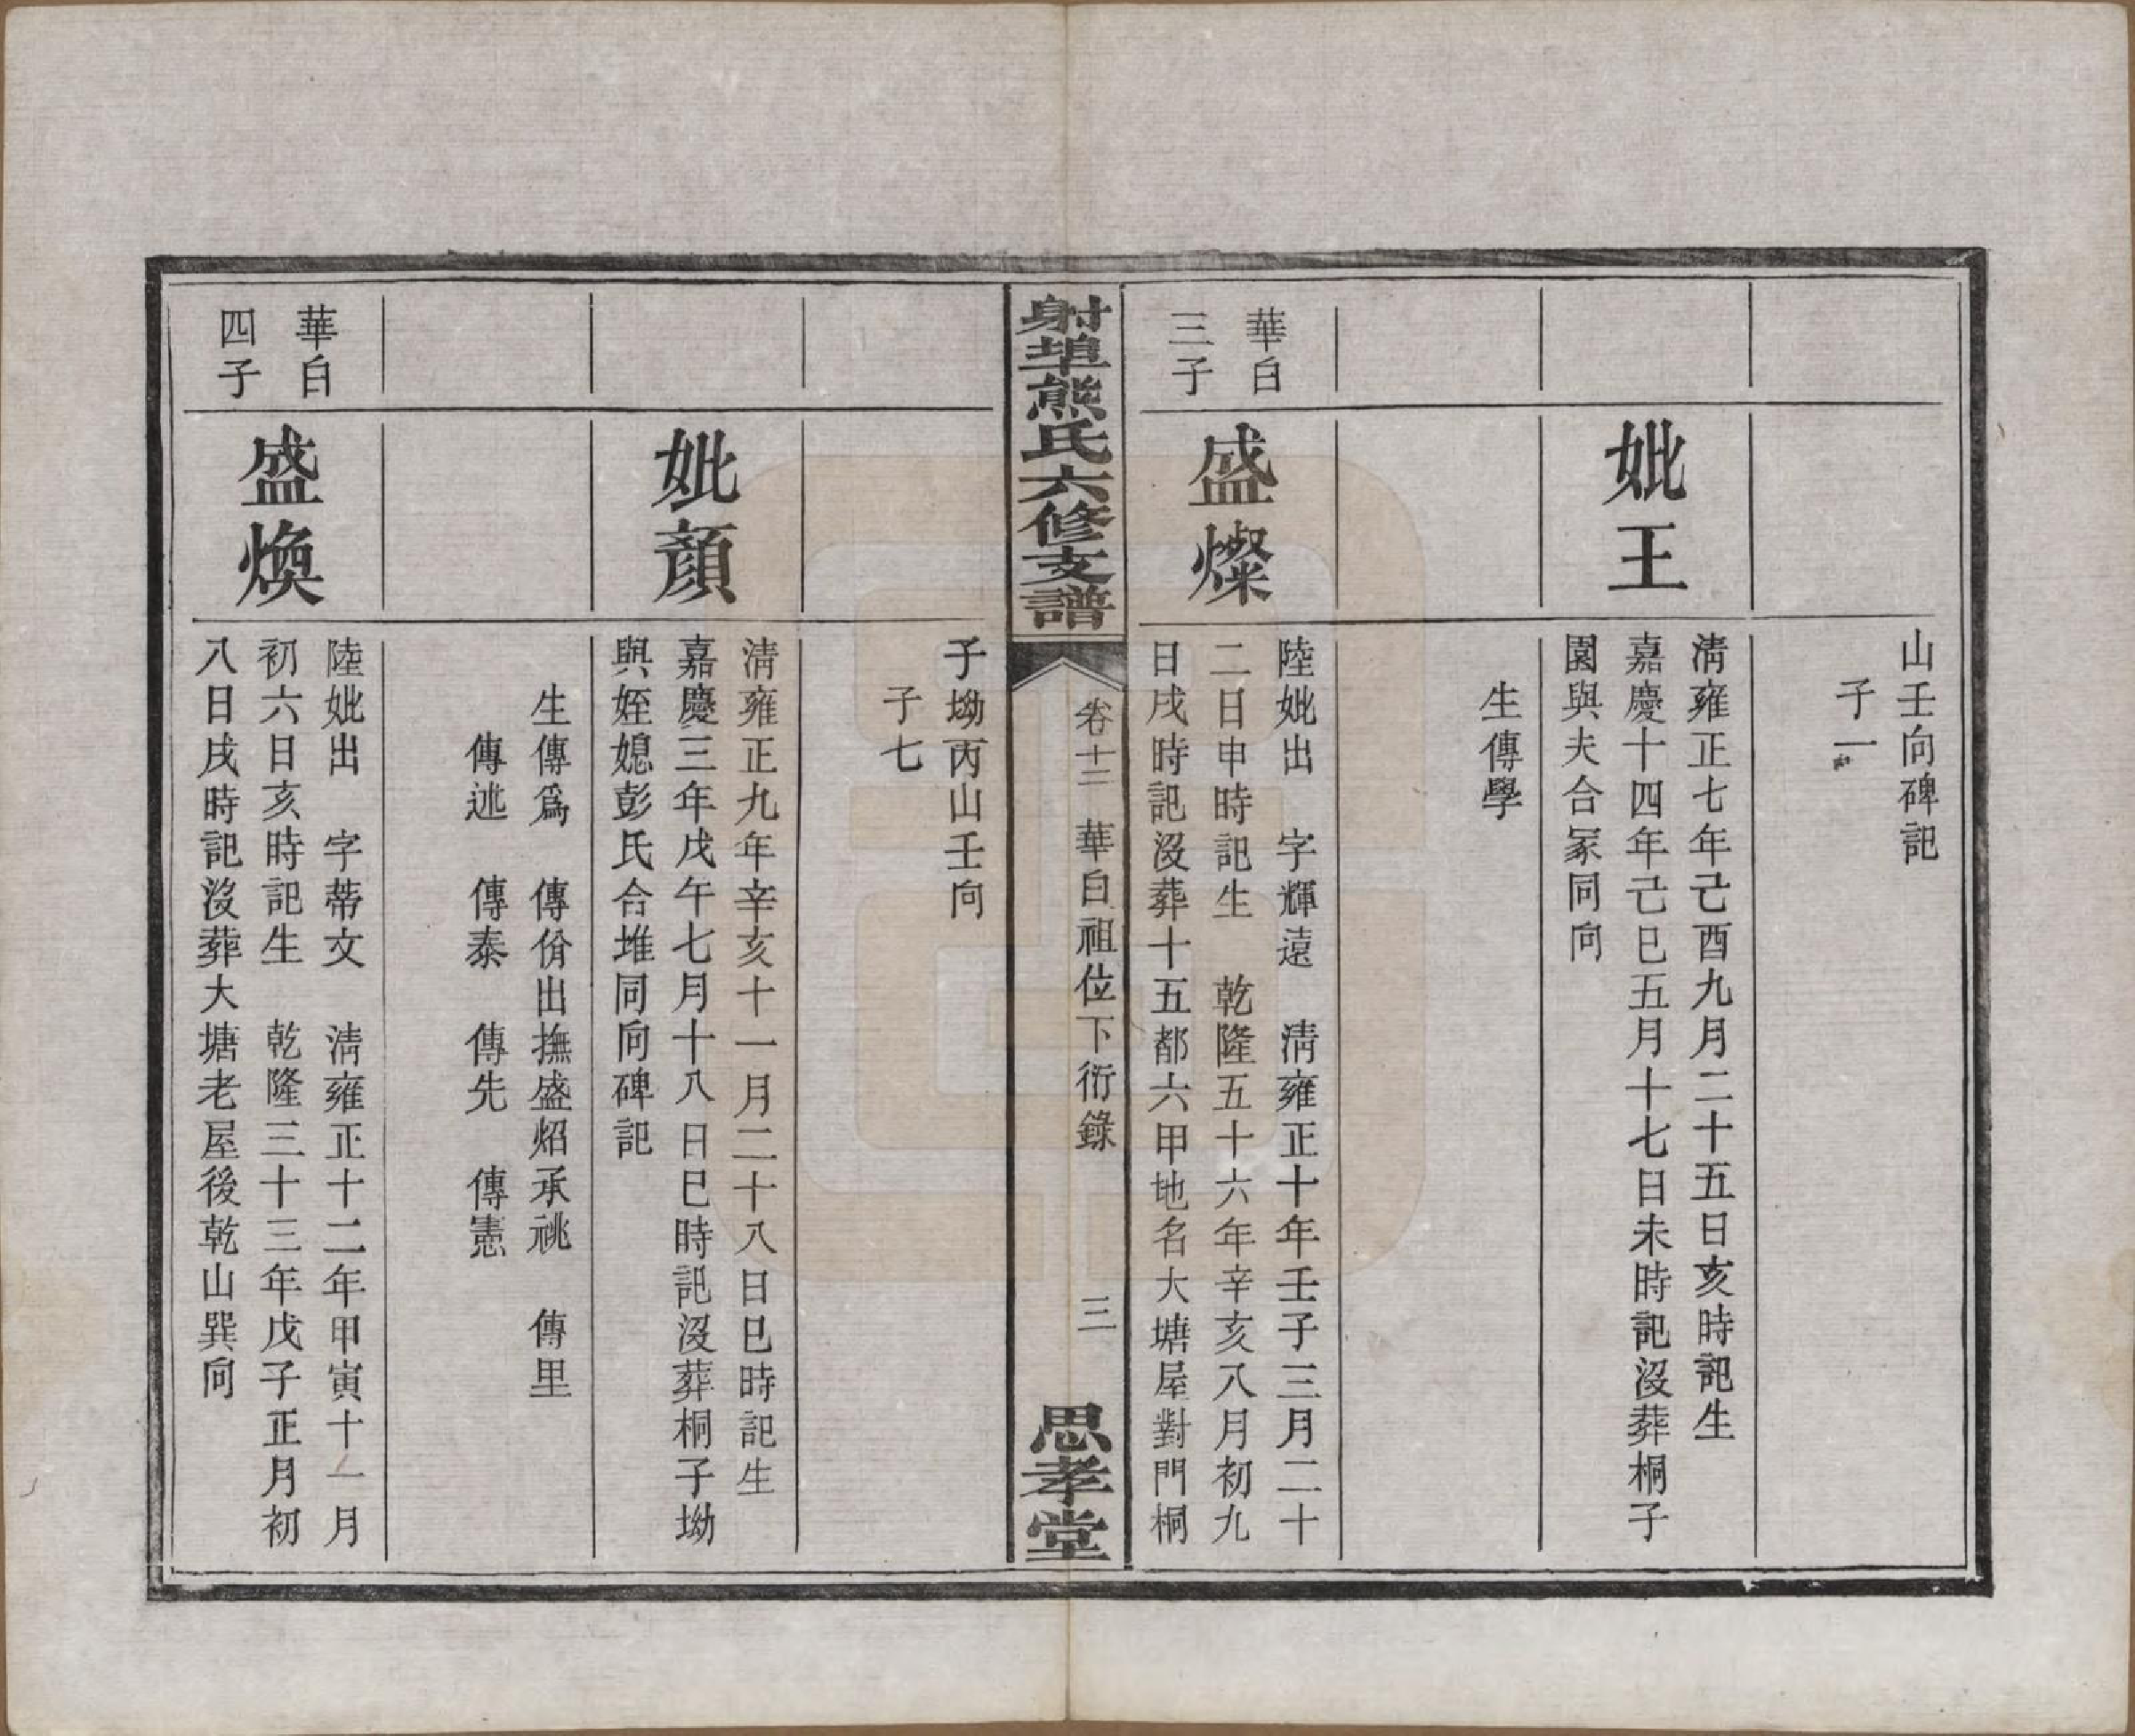 山壬向碑記
子一
妣王
清雍正七年己酉九月二十五日亥時記生
嘉慶十四年己巳五月十七日未時記沒葬桐子
園與夫合冢同向
生傳學
華白
三子
盛燦
陸妣出　字輝遠　清雍正十年壬子三月二十
二日申時記生　乾隆五十六年辛亥八月初九
日戌時記沒葬十五都六甲地名大塘屋對門桐
射埠熊氏六修支譜
卷十二　華白祖位下衍錄
三
思孝堂
子坳丙山壬向
子七
妣顏
清雍正九年辛亥十一月二十八日巳時記生
嘉慶三年戊午七月十八日巳時記沒葬桐子坳
與姪媳彭氏合堆同向碑記
生傳為　傳份出撫盛炤承祧　傳里
傳述　傳泰　傳先　傳憲
華白
四子
盛煥
陸妣出　字蒂文　清雍正十二年甲寅十一月
初六日亥時記生　乾隆三十三年戊子正月初
八日戌時記沒葬大塘老屋後乾山巽向